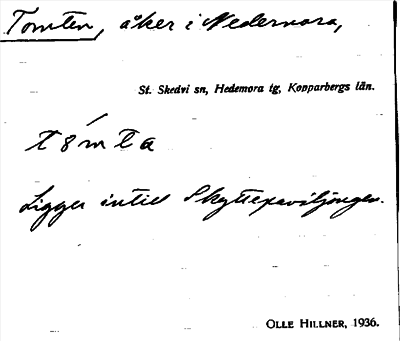 Tomten, åker i Nedernora,
St. Skedvi sn, Hedemora tg, Kopparbergs län.
t8́mta
Ligger intill Skyttepaviljongen.
OLLE HILLNER, 1936.